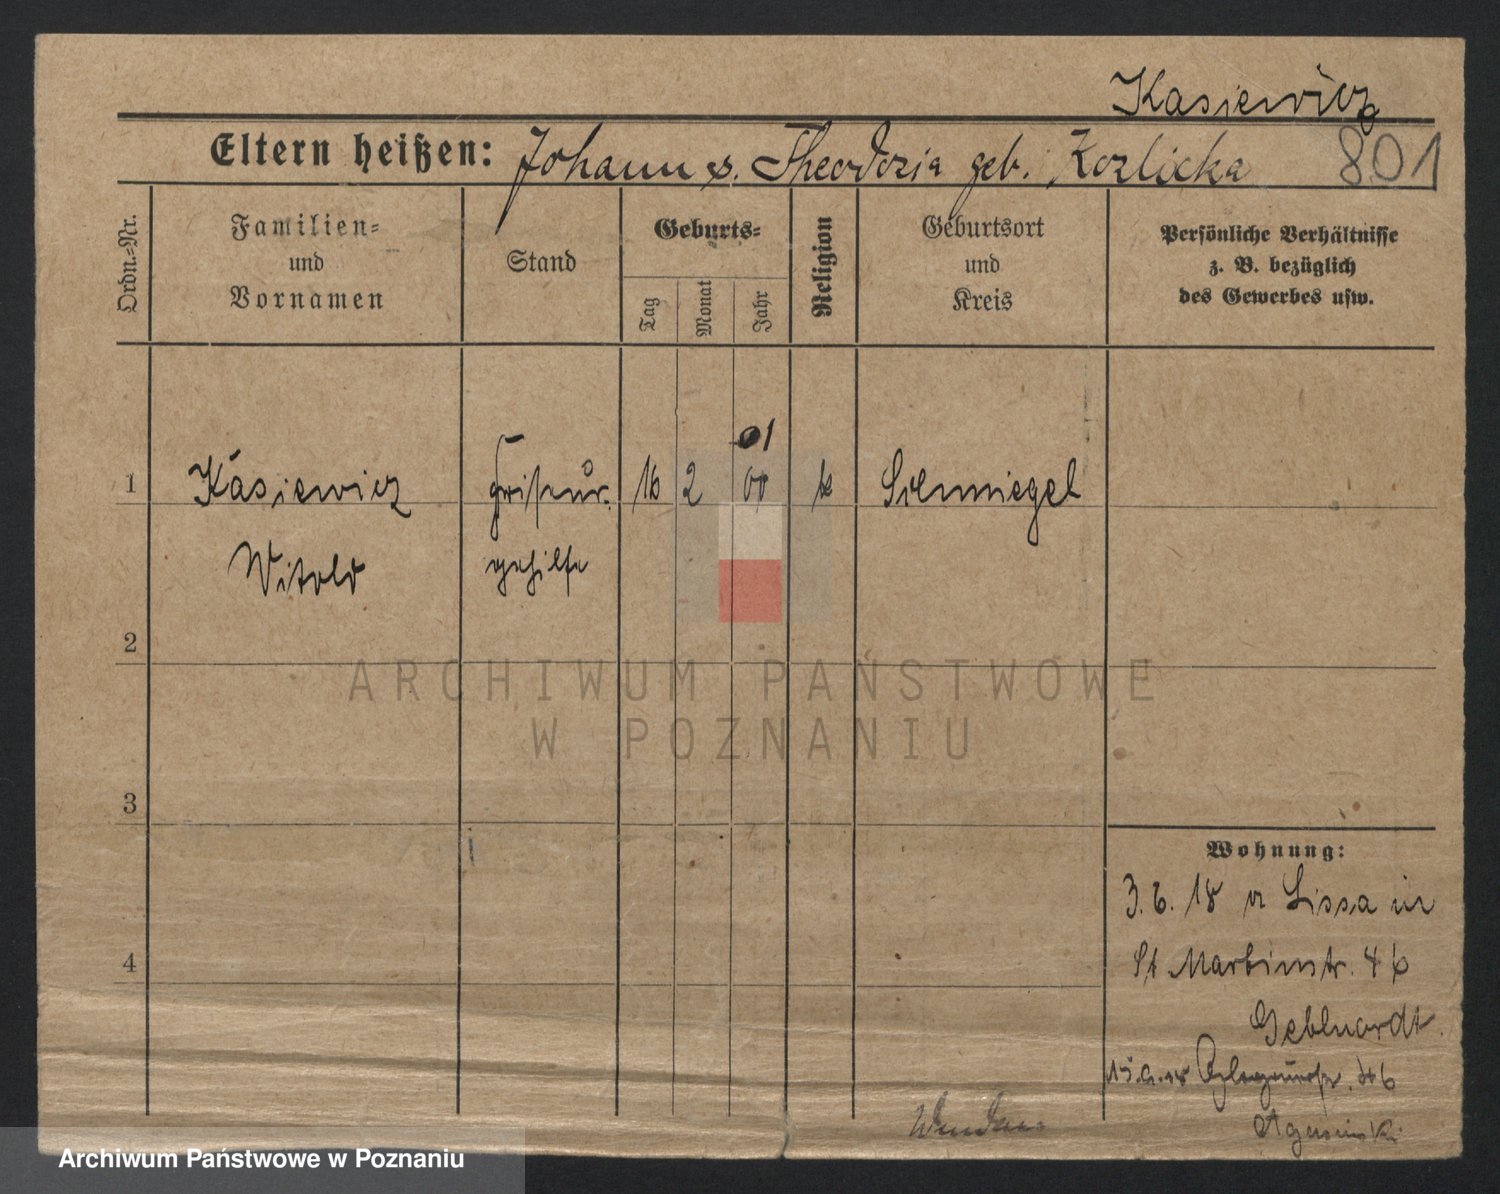 Kasiewicz
Eltern heißen: Johann u. Theodozia geb. Kozlicka 801
Ordn.-Nr.
Familien-
und
Vornamen
Stand
Geburts-
Tag
Monat
Jahr
Religion
Geburtsort
und
Kreis
Persönliche Verhältnisse
z. B. bezüglich
des Gewerbes usw.
01
1 Kasiewicz Friseur- 16 2 00 k Schmiegel
Witold gehilfe
2
ARCHIWUM PAŃSTWOWE
W POZNANIU
3
Wohnung:
3. 6. 18 v Lissa in
St Martinstr. 46
4
Gebhardt.
Archiwum Państwowe w Poznaniu